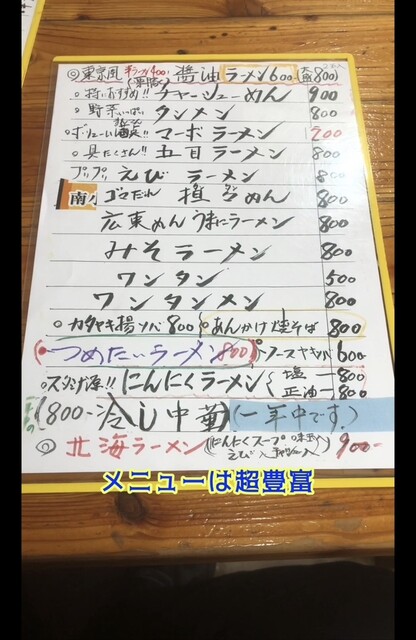 ◎東京風 半ラーメン400 醤油ラーメン600 大盛800
○特におすすめ!! チャーシューめん 900
○野菜いっぱい タンメン 800
○ボリューム満点!! マーボラーメン 700
○具たくさん!! 五目ラーメン 800
プリプリ えびラーメン 800
ゴマだれ 担々めん 800
広東めん うまにラーメン 800
みそラーメン 800
ワンタン 500
ワンタンメン 800
○カタヤキ揚ソバ 800 ○あんかけ焼そば 800
つめたいラーメン 800 ソースヤキソバ 600
にんにくラーメン 塩 800 正油 800
800- 冷し中華(一年中です。)
◎北海ラーメン(にんにくスープ 味 えび入 チャーシュー入) 900-
メニューは超豊富